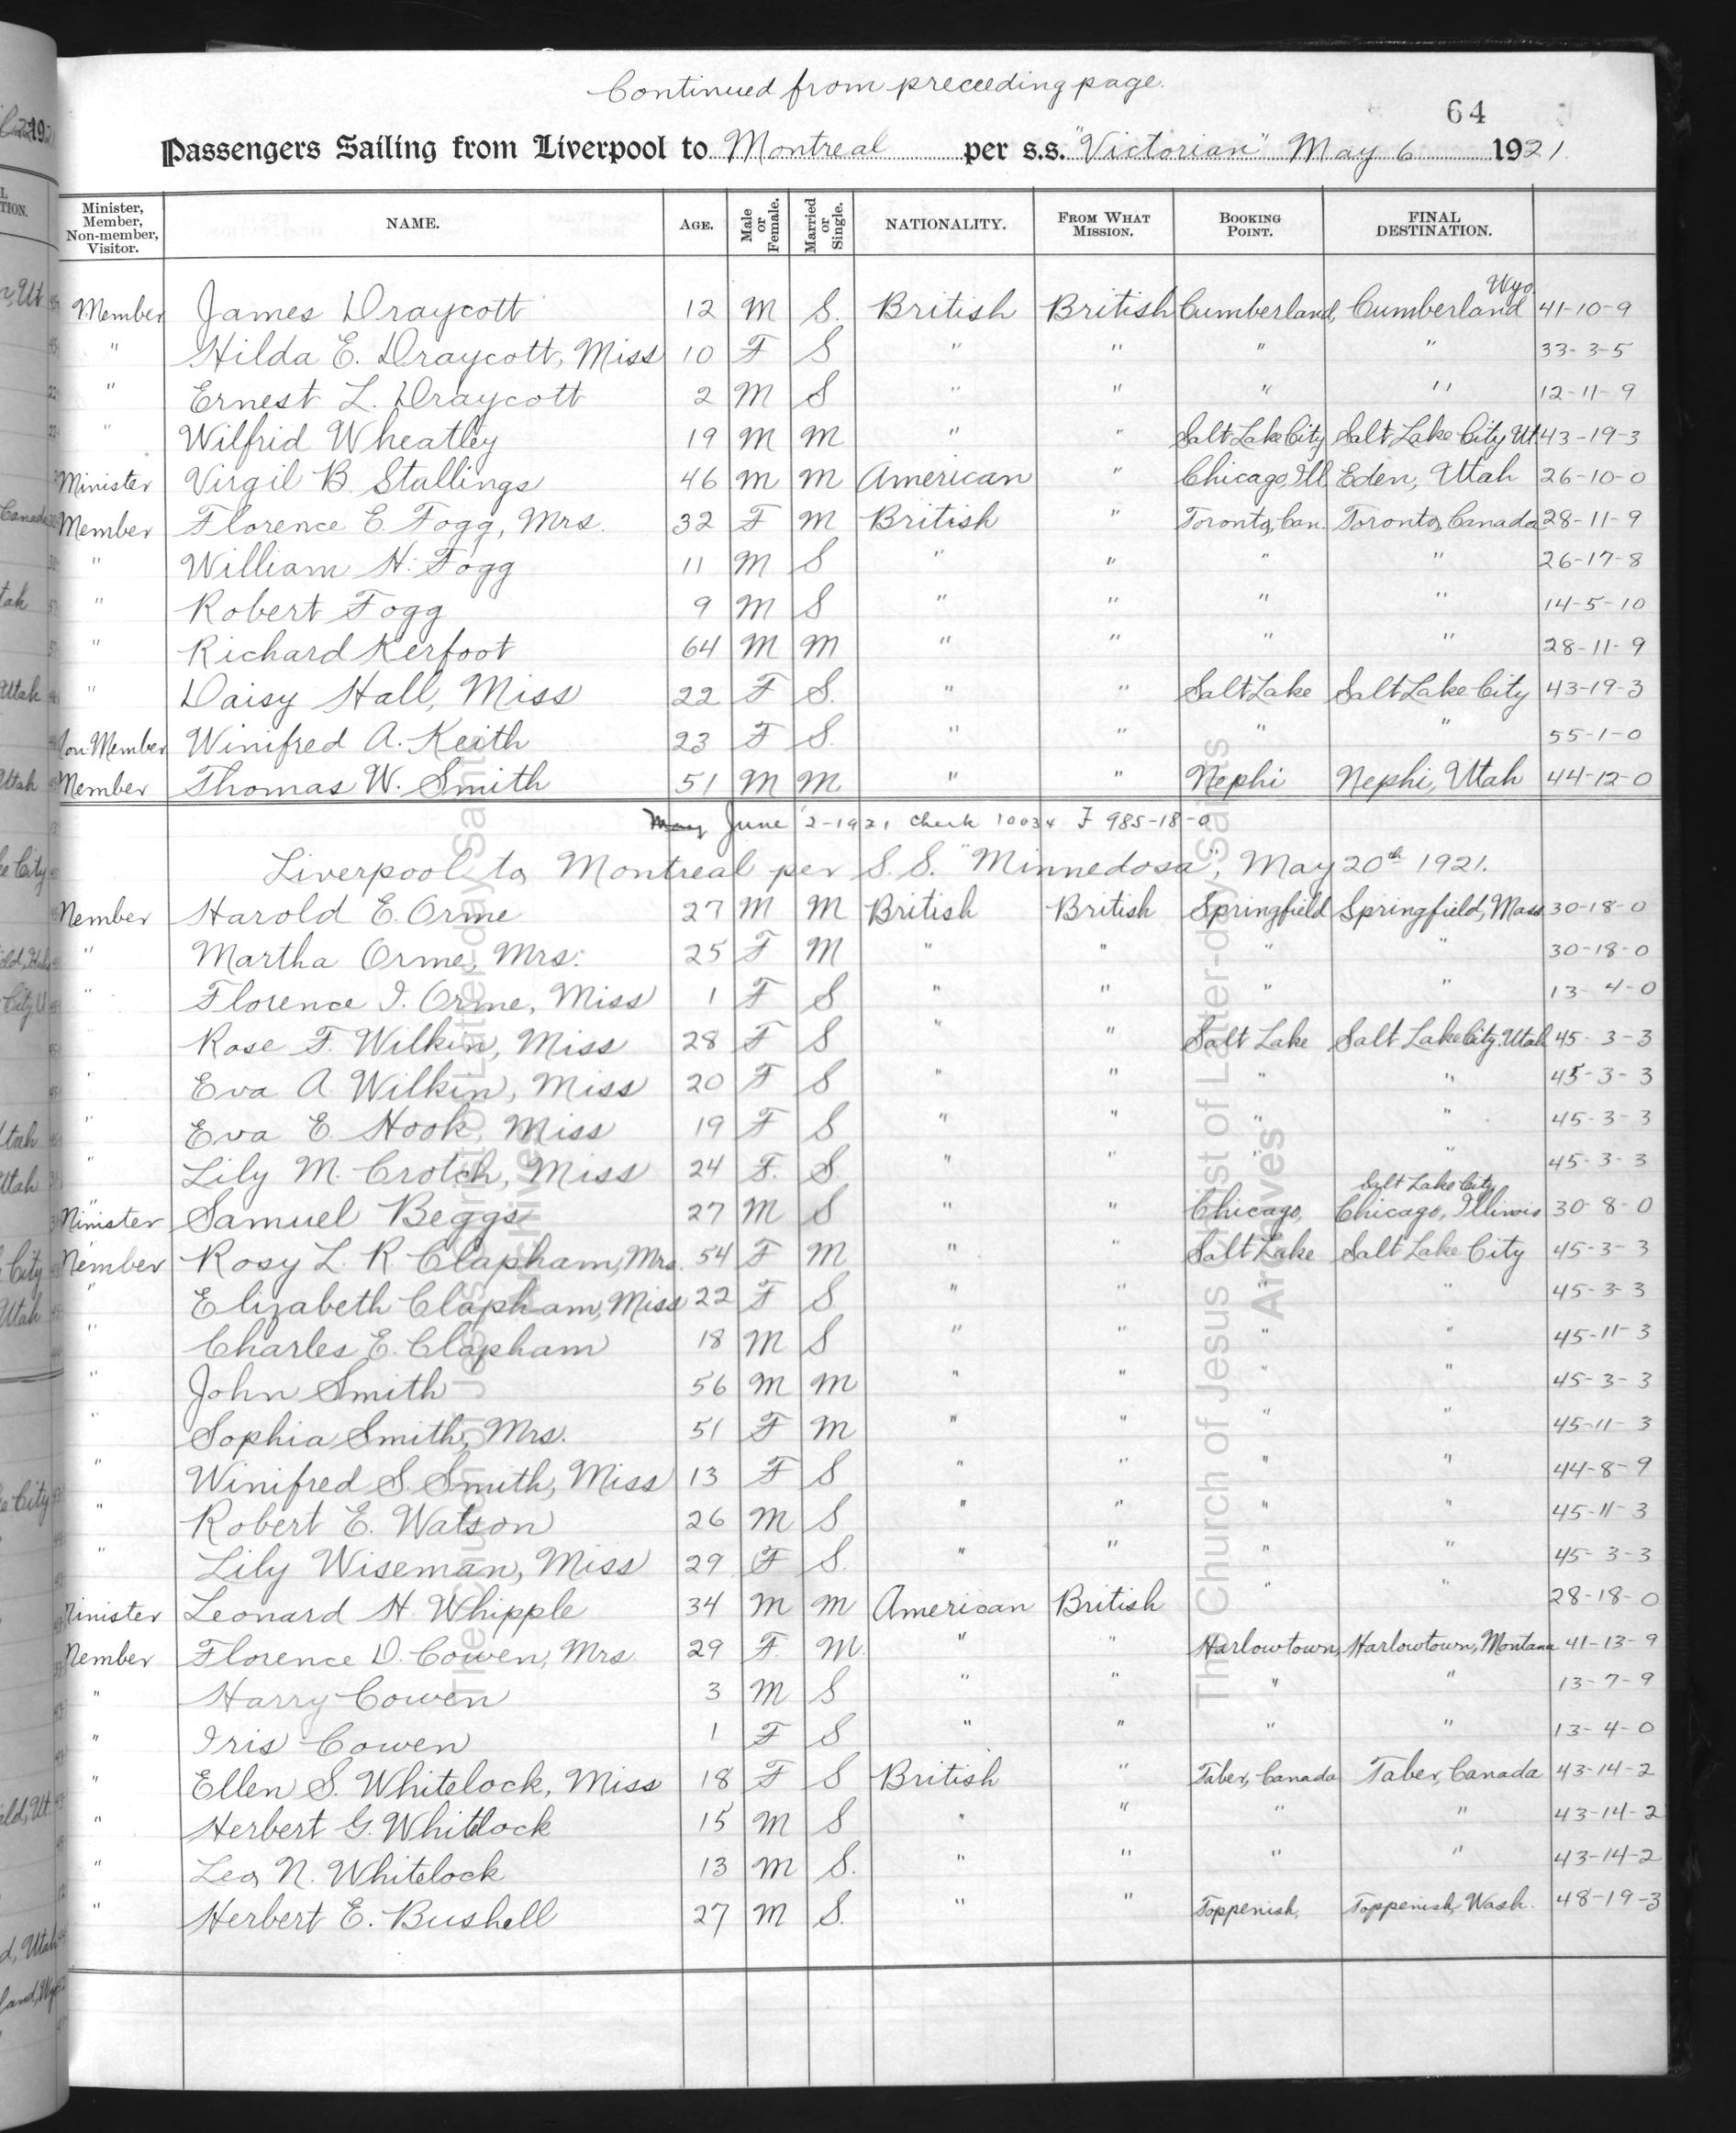 Continued from preceeding page.
64
Passengers Sailing from Liverpool to Montreal per s.s. "Victorian" May 6 1921.
Minister, Member, Non-member, Visitor. NAME. AGE. Male or Female. Married or Single. NATIONALITY. FROM WHAT MISSION. BOOKING POINT. FINAL DESTINATION.
Member James Draycott 12 M S. British British Cumberland, Cumberland Wyo 41-10-9
" Hilda E. Draycott, Miss 10 F S " " " " 33-3-5
" Ernest L. Draycott 2 M S " " " " 12-11-9
" Wilfrid Wheatley 19 M M " " Salt Lake City Salt Lake City Ut 43-19-3
Minister Virgil B. Stallings 46 M M American " Chicago, Ill Eden, Utah 26-10-0
Member Florence E. Fogg, Mrs. 32 F M British " Toronto, Can. Toronto, Canada 28-11-9
" William H. Fogg 11 M S " " " " 26-17-8
" Robert Fogg 9 M S " " " " 14-5-10
" Richard Kerfoot 64 M M " " " " 28-11-9
" Daisy Hall, Miss 22 F S. " " Salt Lake Salt Lake City 43-19-3
Non-Member Winifred A. Keith 23 F S. " " " " 55-1-0
Member Thomas W. Smith 51 M M " " Nephi Nephi, Utah 44-12-0
May June 2-1921 Check 10034 £ 985-18-0
Liverpool to Montreal per S.S. "Minnedosa", May 20th 1921.
Member Harold E. Orme 27 M M British British Springfield Springfield, Mass 30-18-0
" Martha Orme, Mrs. 25 F M " " " " 30-18-0
" Florence I. Orme, Miss 1 F S " " " " 13-4-0
" Rose F. Wilkin, Miss 28 F S " " Salt Lake Salt Lake City. Utah 45-3-3
" Eva A. Wilkin, Miss 20 F S " " " " 45-3-3
" Eva E. Hook, Miss 19 F S " " " " 45-3-3
" Lily M. Crotch, Miss 24 F. S " " " 45-3-3
Minister Samuel Beggs 27 M S " " Chicago, Salt Lake City Chicago, Illinois 30-8-0
Member Rosy L. R. Clapham, Mrs. 54 F M " " Salt Lake Salt Lake City 45-3-3
" Elizabeth Clapham, Miss 22 F S " " " " 45-3-3
" Charles E. Clapham 18 M S " " " " 45-11-3
" John Smith 56 M M " " " " 45-3-3
" Sophia Smith, Mrs. 51 F M " " " " 45-11-3
" Winifred S. Smith, Miss 13 F S " " " " 44-8-9
" Robert E. Watson 26 M S " " " " 45-11-3
" Lily Wiseman, Miss 29 F S. " " " " 45-3-3
Minister Leonard H. Whipple 34 M M American British " " 28-18-0
Member Florence D. Cowen, Mrs. 29 F. M. " " Harlowtown, Harlowtown, Montana 41-13-9
" Harry Cowen 3 M S " " " " 13-7-9
" Iris Cowen 1 F S " " " " 13-4-0
" Ellen S. Whitelock, Miss 18 F S British " Taber, Canada Taber, Canada 43-14-2
" Herbert G. Whitlock 15 M S " " " " 43-14-2
" Leo N. Whitelock 13 M S. " " " " 43-14-2
" Herbert E. Bushell 27 M S. " " Toppenish, Toppenish, Wash. 48-19-3
The Church of Jesus Christ of Latter-day Saints
Archives
The Church of Jesus Christ of Latter-day Saints
Archives